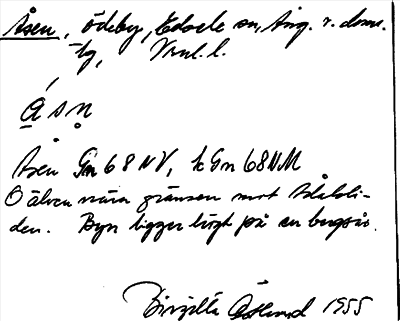 Åsen, ödeby, Edsele sn, Ång. v. doms.
tg, Vnl. l.
ásn
Åsen Gm 68 NV, k Gm 68 NM
O älven nära gränsen mot
den. Byn ligger högt på en bergås.
Birgitta Östlund 1955